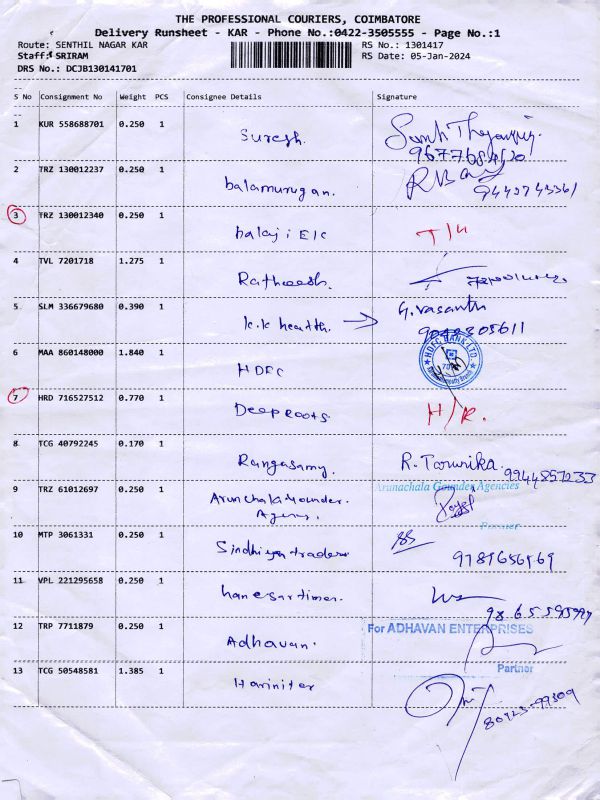 THE PROFESSIONAL COURIERS, COIMBATORE
Delivery Runsheet - KAR - Phone No.:0422-3505555 - Page No.:1
Route: SENTHIL NAGAR KAR RS No.: 1301417
Staff: SRIRAM RS Date: 05-Jan-2024
DRS No.: DCJB130141701
S No Consignment No Weight PCS Consignee Details Signature
1 KUR 558688701 0.250 1 Suresh.
2 TRZ 130012237 0.250 1 balamurugan. 9442743361
3 TRZ 130012340 0.250 1 balaji E/C
4 TVL 7201718 1.275 1 Ratheesh.
5 SLM 336679680 0.390 1 K.K health. → G.Vasanth
9042305611
6 MAA 860148000 1.840 1 HDFC HDFC BANK LTD.
7 HRD 716527512 0.770 1 Deeproots. H/R.
8 TCG 40792245 0.170 1 Rangasamy. R. Tarunika. 9944857233
9 TRZ 61012697 0.250 1 Arunchala Gounder. Arunachala Gounder Agencies
Agency. Partner
10 MTP 3061331 0.250 1 Sindhiya traders SS
9789656569
11 VPL 221295658 0.250 1
12 TRP 7711879 0.250 1 Adhavan. For ADHAVAN ENTERPRISES
Partner
13 TCG 50548581 1.385 1 80923-99309